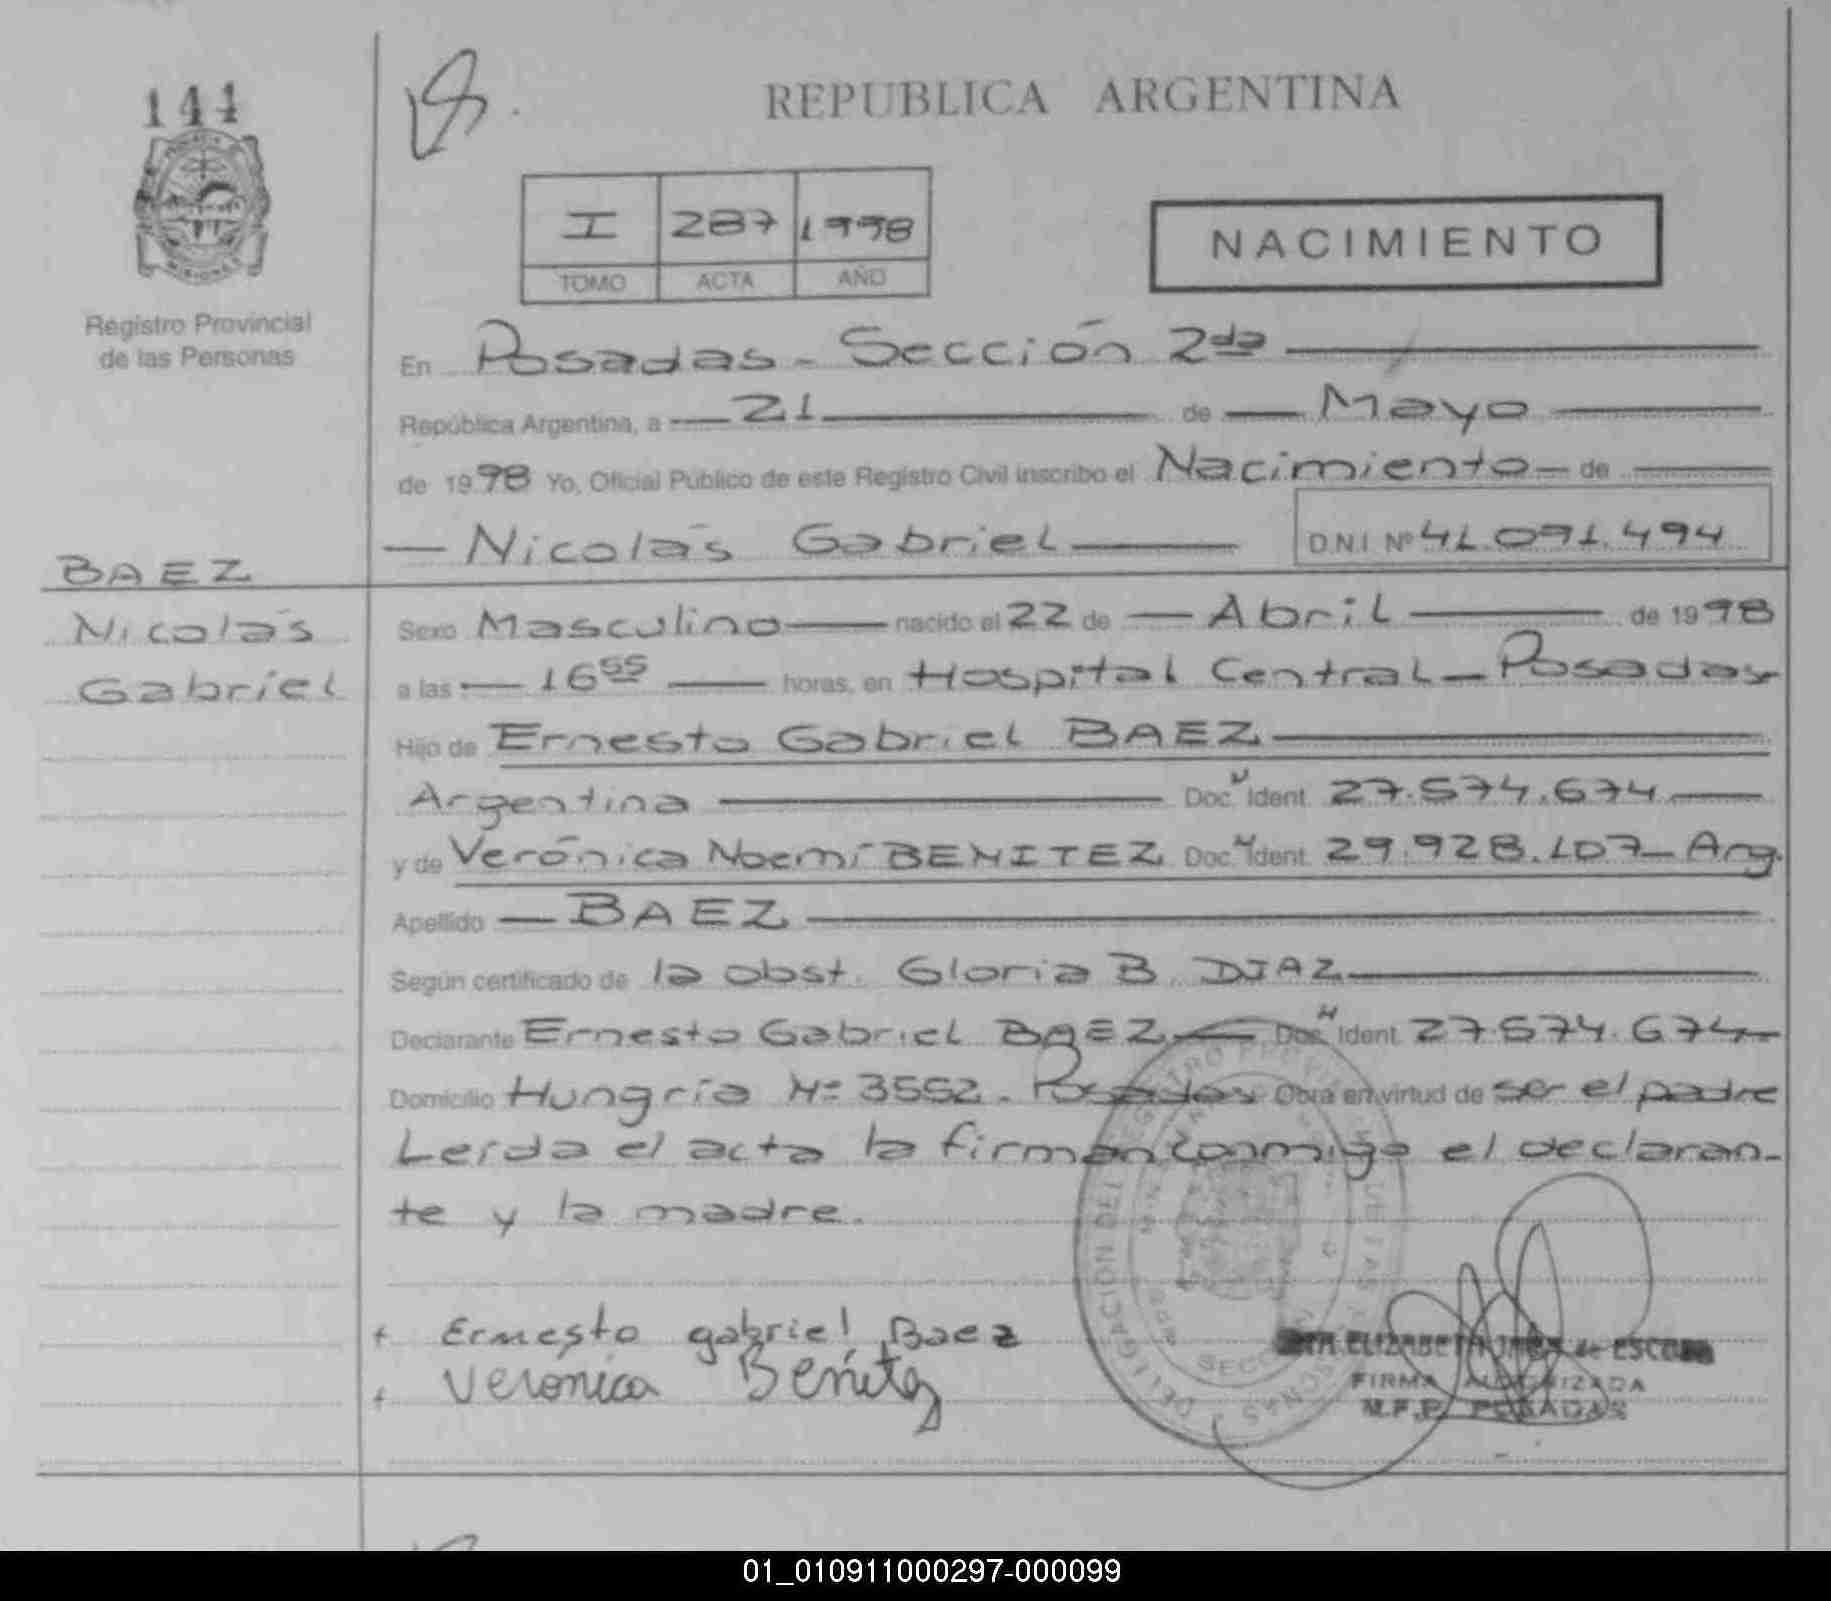 144
REPUBLICA ARGENTINA
I 287 1998
TOMO ACTA AÑO
NACIMIENTO
MISIONES
Registro Provincial
de las Personas
En Posadas - Sección 2da
República Argentina, a 21 de Mayo
de 1998 Yo, Oficial Público de este Registro Civil inscribo el Nacimiento de
Nicolás Gabriel D.N.I Nº 41.091.494
BAEZ
Nicolás
Gabriel
Sexo Masculino nacido el 22 de Abril de 1998
a las 16 55 horas, en Hospital Central - Posadas
Hijo de Ernesto Gabriel BAEZ
Argentina Doc. Ident. 27.574.674
y de Verónica Noemí BENITEZ Doc. Ident. 29.928.107 - Arg.
Apellido BAEZ
Según certificado de la obst. Gloria B. DIAZ
Declarante Ernesto Gabriel BAEZ Doc. Ident. 27.574.674
Domicilio Hungría Nº 3552 - Posadas Obra en virtud de ser el padre
Leída el acta la firman conmigo el declaran-
te y la madre.
Ernesto gabriel Baez
Verónica Benítez
ELIZABETH de ESCOBAR
FIRMA AUTORIZADA
POSADAS
01_010911000297-000099